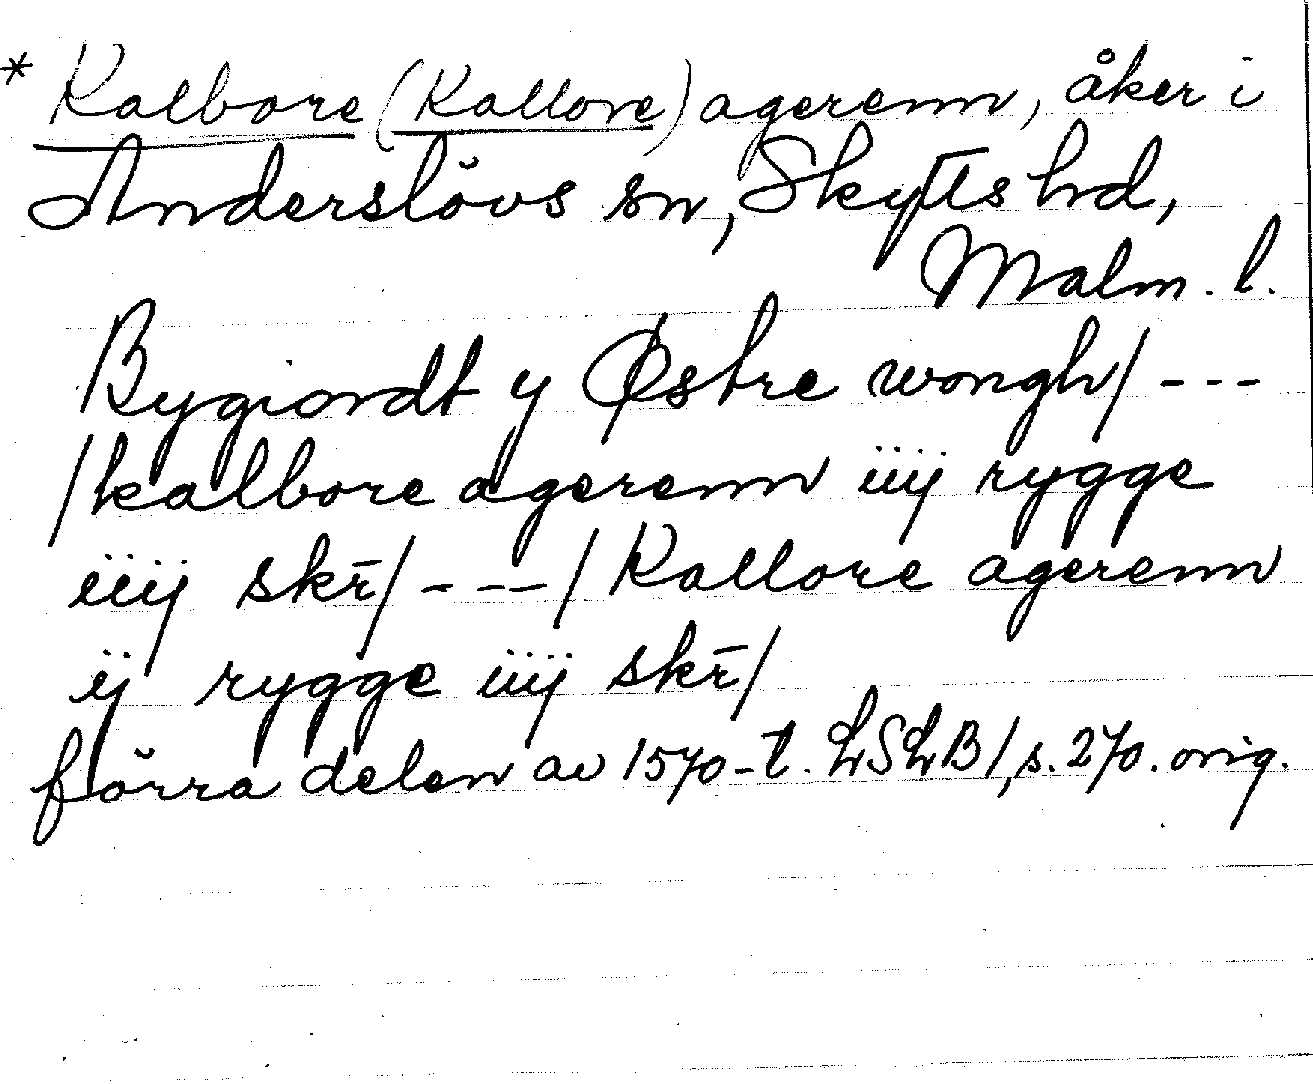 * Kalbore (Kallore) agerenn, åker i
Anderslövs sn, Skytts hd,
Malm. l.
Bygiordt y Østre wongh/ ---
/kalbore agerenn iiij rygge
iiij skr̄/ --- / Kallore agerenn
ij rygge iiij skr̄/
förra delen av 1570-t. LSLB/, s. 270. orig.